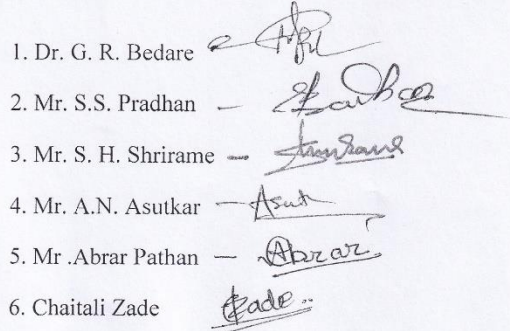 1. Dr. G. R. Bedare
2. Mr. S.S. Pradhan –
3. Mr. S. H. Shrirame –
4. Mr. A.N. Asutkar – Asut
5. Mr .Abrar Pathan – Abrar
6. Chaitali Zade Zade